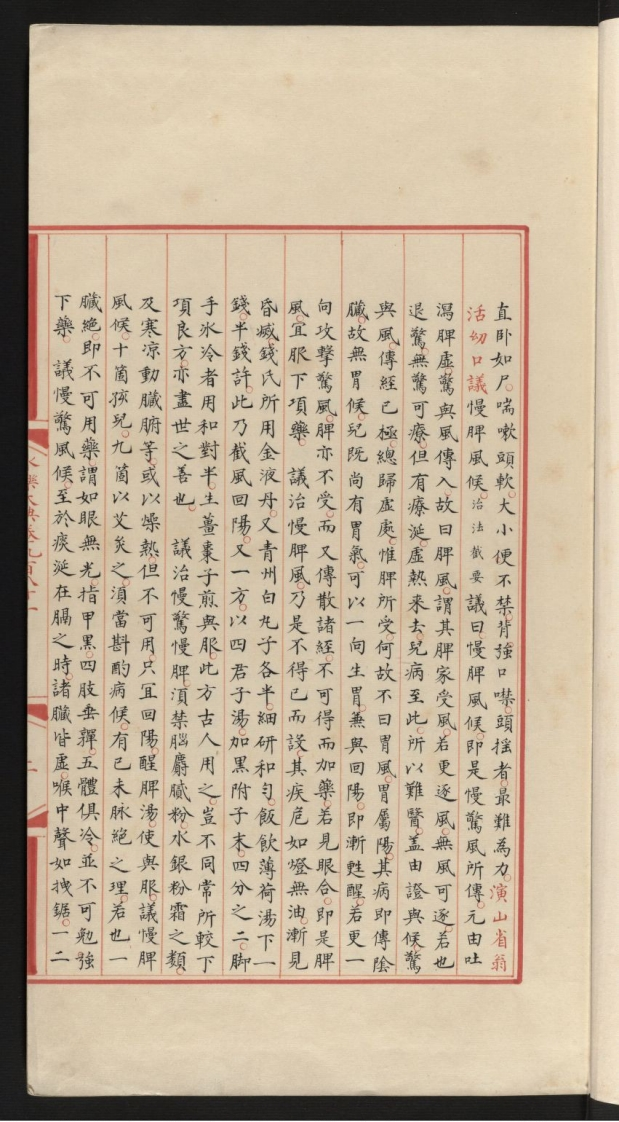 直卧如尸喘嗽頭軟大小便不禁背強口噤頭搖者最難為力演山省翁
活幼口議慢脾風候治法截要議曰慢脾風候即是慢驚風所傳元由吐
瀉脾虛驚與風傳入故曰脾風謂其脾家受風若更逐風無風可逐若也
退驚無驚可療但有療涎虛熱來去兒病至此所以難醫蓋由證與候驚
與風傳經已極總歸虛處惟脾所受何故不曰胃風胃屬陽其病即傳陰
臟故無胃候兒既尚有胃氣可以一向生胃兼與回陽即漸甦醒若更一
向攻擊驚風脾亦不受而又傳散諸經不可得而加藥若見眼合即是脾
風宜服下項藥 議治慢脾風乃是不得已而設其疾危如燈無油漸見
昏滅錢氏所用金液丹又青州白丸子各半細研和勻飯飲薄荷湯下一
錢半錢許此乃截風回陽又一方以四君子湯加黑附子末四分之二脚
手氷冷者用和對半生薑棗子煎與服此方古人用之豈不同常所較下
項良方亦盡世之善也 議治慢驚慢脾湏禁腦麝膩粉水銀粉霜之類
及寒凉動臟腑等或以燥熱但不可用只宜回陽醒脾湯使與服議慢脾
風候十箇孩兒九箇以艾灸之湏當斟酌病候有已未脉絶之理若也一
臟絶即不可用藥謂如眼無光指甲黑四肢垂嚲五體俱冷並不可勉強
下藥 議慢驚風候至於痰涎在膈之時諸臟皆虛喉中聲如拽鋸一二